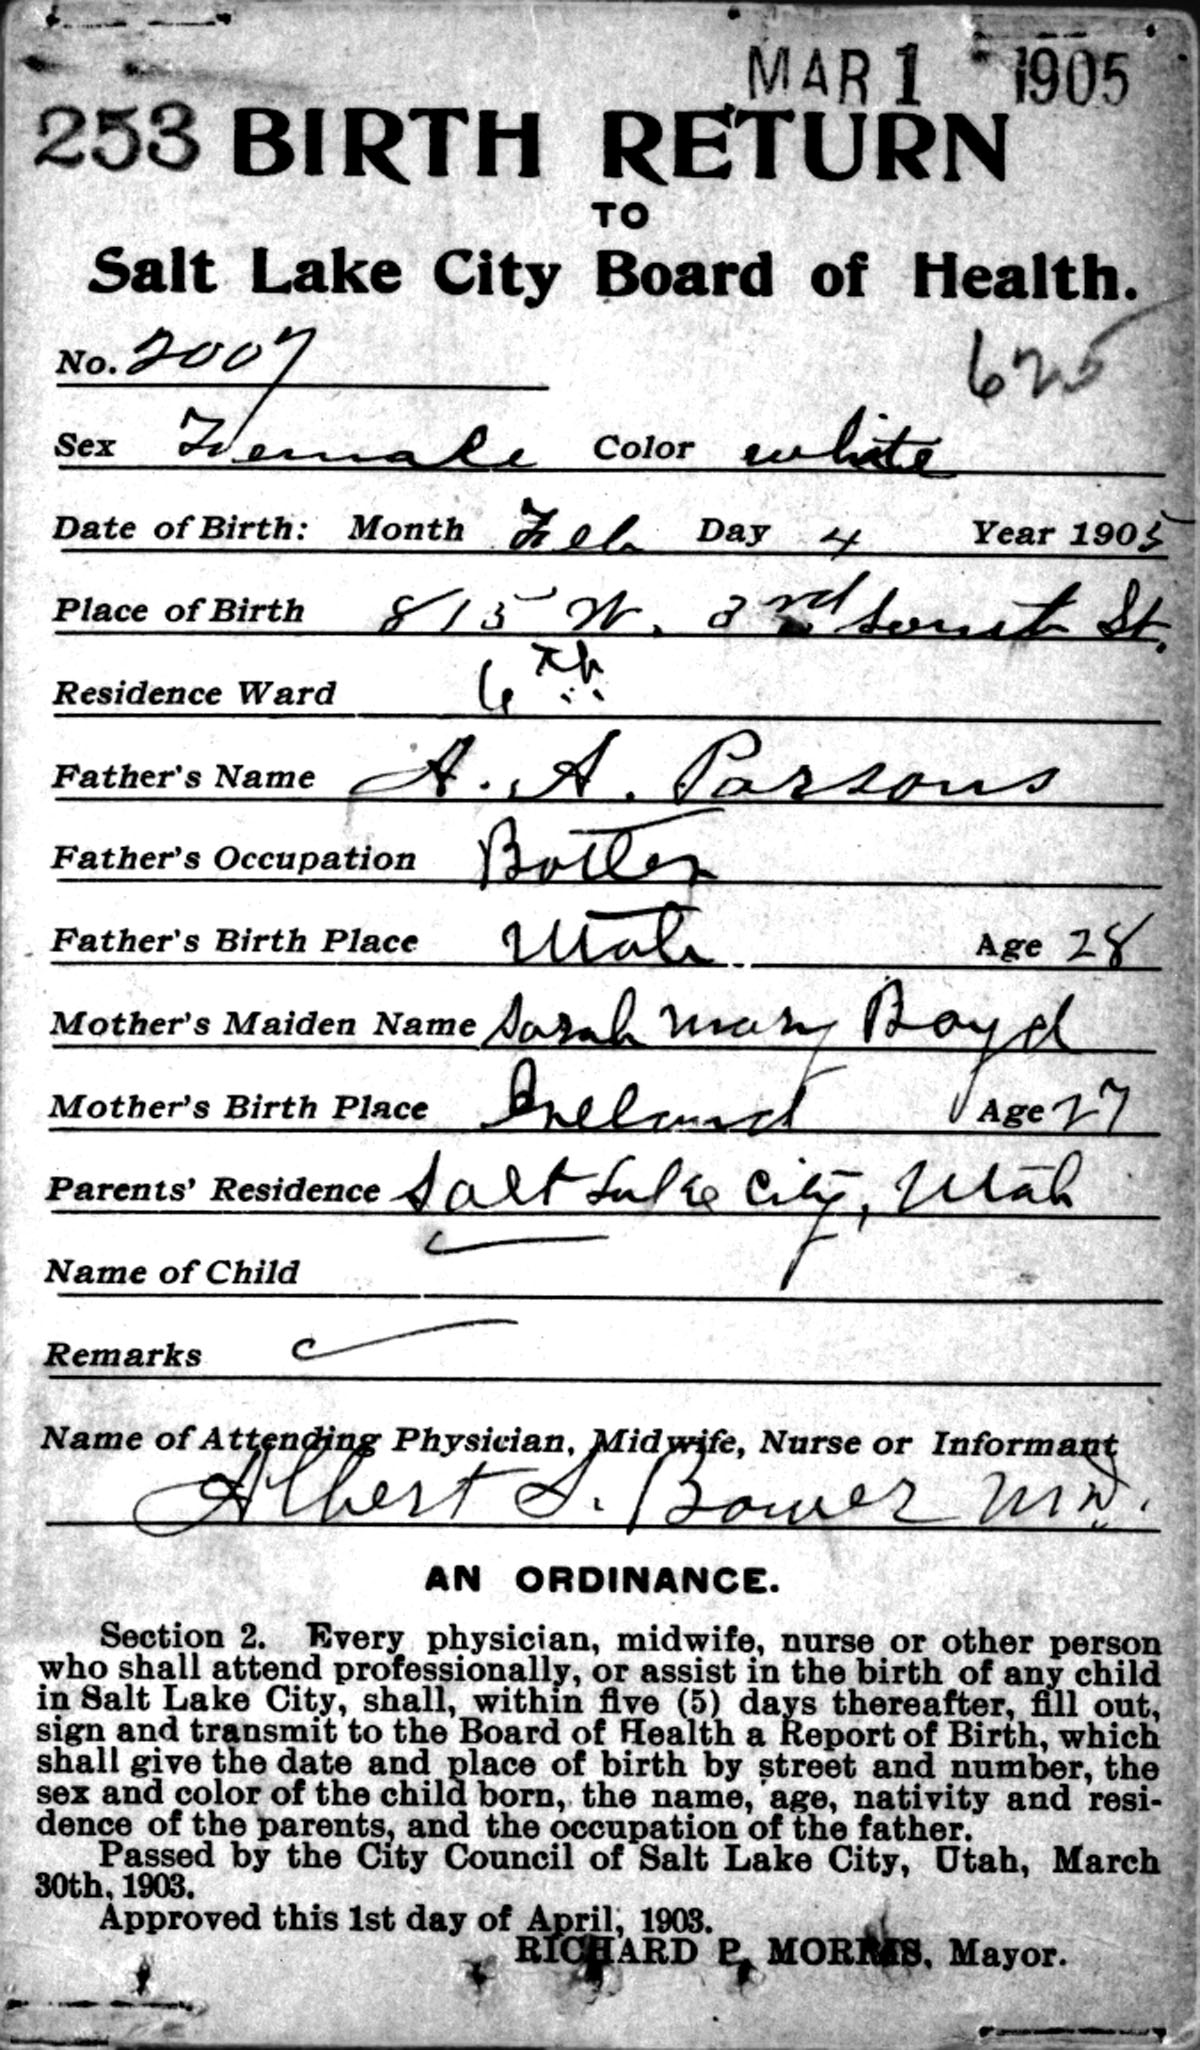 MAR 1 1905
253 BIRTH RETURN
TO
Salt Lake City Board of Health.
No. 2007 625
Sex Female Color white
Date of Birth: Month Feb Day 4 Year 1905
Place of Birth 815 W. 3rd South St.
Residence Ward 6th
Father's Name A. A. Parsons
Father's Occupation Botler
Father's Birth Place Utah Age 28
Mother's Maiden Name Sarah Mary Boyd
Mother's Birth Place Ireland Age 27
Parents' Residence Salt Lake City, Utah
Name of Child
Remarks
Name of Attending Physician, Midwife, Nurse or Informant
Albert S. Bower M.D.
AN ORDINANCE.
Section 2. Every physician, midwife, nurse or other person
who shall attend professionally, or assist in the birth of any child
in Salt Lake City, shall, within five (5) days thereafter, fill out,
sign and transmit to the Board of Health a Report of Birth, which
shall give the date and place of birth by street and number, the
sex and color of the child born, the name, age, nativity and resi-
dence of the parents, and the occupation of the father.
Passed by the City Council of Salt Lake City, Utah, March
30th, 1903.
Approved this 1st day of April, 1903.
RICHARD P. MORRIS, Mayor.